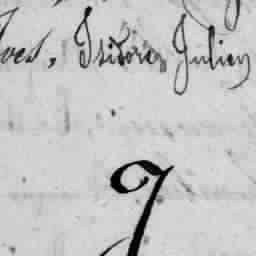 Yves, Isidore, Julien